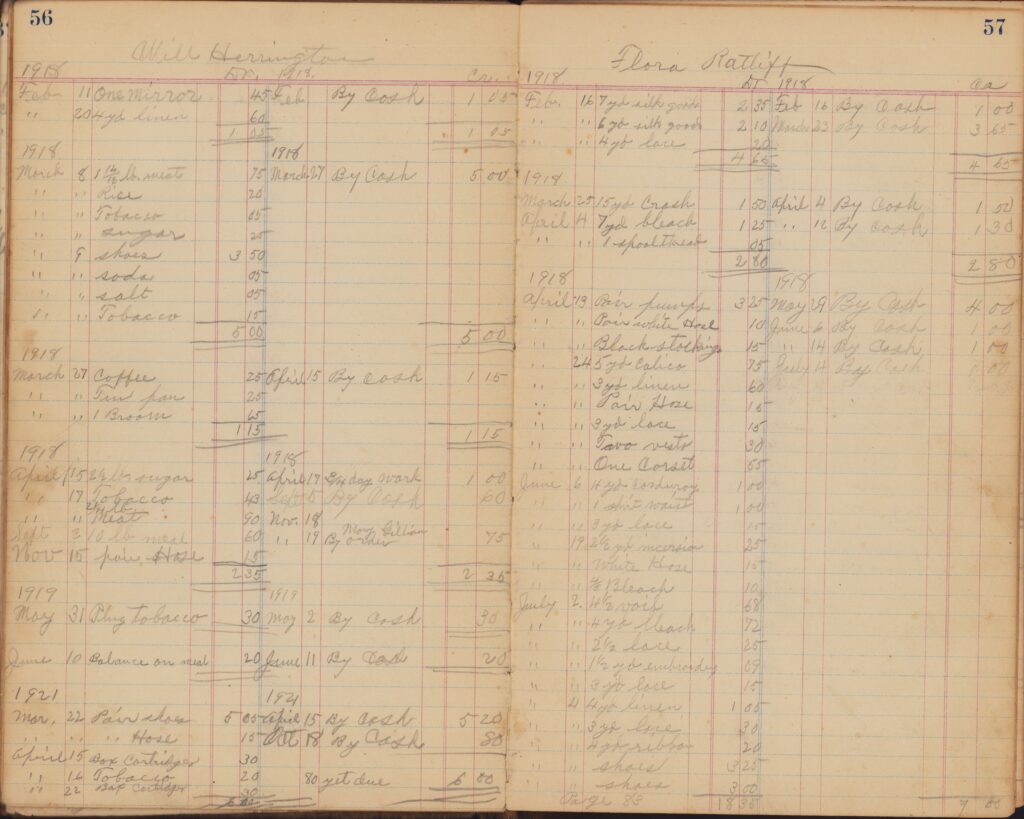 56
Will Herrington
1918 Dr. 1918. Cr.
Feb 11 One Mirror 45 Feb By Cash 1 05
" 20 4 yd linen 60
1 05 1 05
1918 1918
March 8 1 lb. meat 75 March 27 By Cash 5 00
" " Rice 20
" " Tobacco 05
" " sugar 25
" 9 shoes 3 50
" " soda 05
" " salt 05
" " Tobacco 15
5 00 5 00
1918
March 27 Coffee 25 April 15 By Cash 1 15
" " Tin pan 25
" " 1 Broom 65
1 15 1 15
1918 1918
April 15 2½ lb sugar 25 April 19 day work 1 00
" 17 Tobacco 45 Sept 5 By Cash 60
" " Meat 90 Nov. 18
Sept 3 10 lb meal 60 " 19 By order 75
Nov 15 pair Hose 15
2 35 2 35
1919 1919
May 31 Plug tobacco 30 May 2 By Cash 30
June 10 Balance on meat 20 June 11 By Cash 20
1921 1921
Mar. 22 Pair shoes 5 05 April 15 By Cash 5 20
" " " Hose 15 Oct 18 By Cash 80
April 15 Box Cartridges 30
" 16 Tobacco 20 80 yet due 6 00
" 22 Box Cartridges 30
57
Flora Ratliff
1918 Dr 1918 Ca
Feb. 16 7 yd silk goods 2 35 Feb 16 By Cash 1 00
" " 6 yd silk goods 2 10 March 23 By Cash 3 65
" " 4 yd lace 20
4 65 4 65
1918
March 25 15 yd Crash 1 50 April 4 By Cash 1 50
April 4 7 yd bleach 1 25 " 12 By Cash 1 30
" " 1 spool thread 05
2 80 2 80
1918 1918
April 13 Pair pumps 3 25 May 29 By Cash 4 00
" " Pair white Hose 10 June 6 By Cash 1 00
" " Black stockings 15 " 14 By Cash 1 00
" 24 5 yd calico 75 July 4 By Cash 1 00
" " 3 yd linen 60
" " Pair Hose 15
" " 3 yd lace 15
" " Two vests 30
" " One Corset 55
June 6 4 yd corduroy 1 00
" " 1 shirt waist 1 00
" " 3 yd lace 15
" 19 2½ yd incersion 25
" " White Hose 15
" " Bleach 10
July 2. 4½ voil 68
" " 4 yd bleach 72
" " 2½ lace 25
" " 1½ yd embroidey 09
" " 3 yd lace 15
" 4 4 yd linen 1 05
" " 3 yd lace 30
" " 4 yd ribbon 20
" " shoes 3 25
" " shoes 3 00
Page 83 18 35 7 00